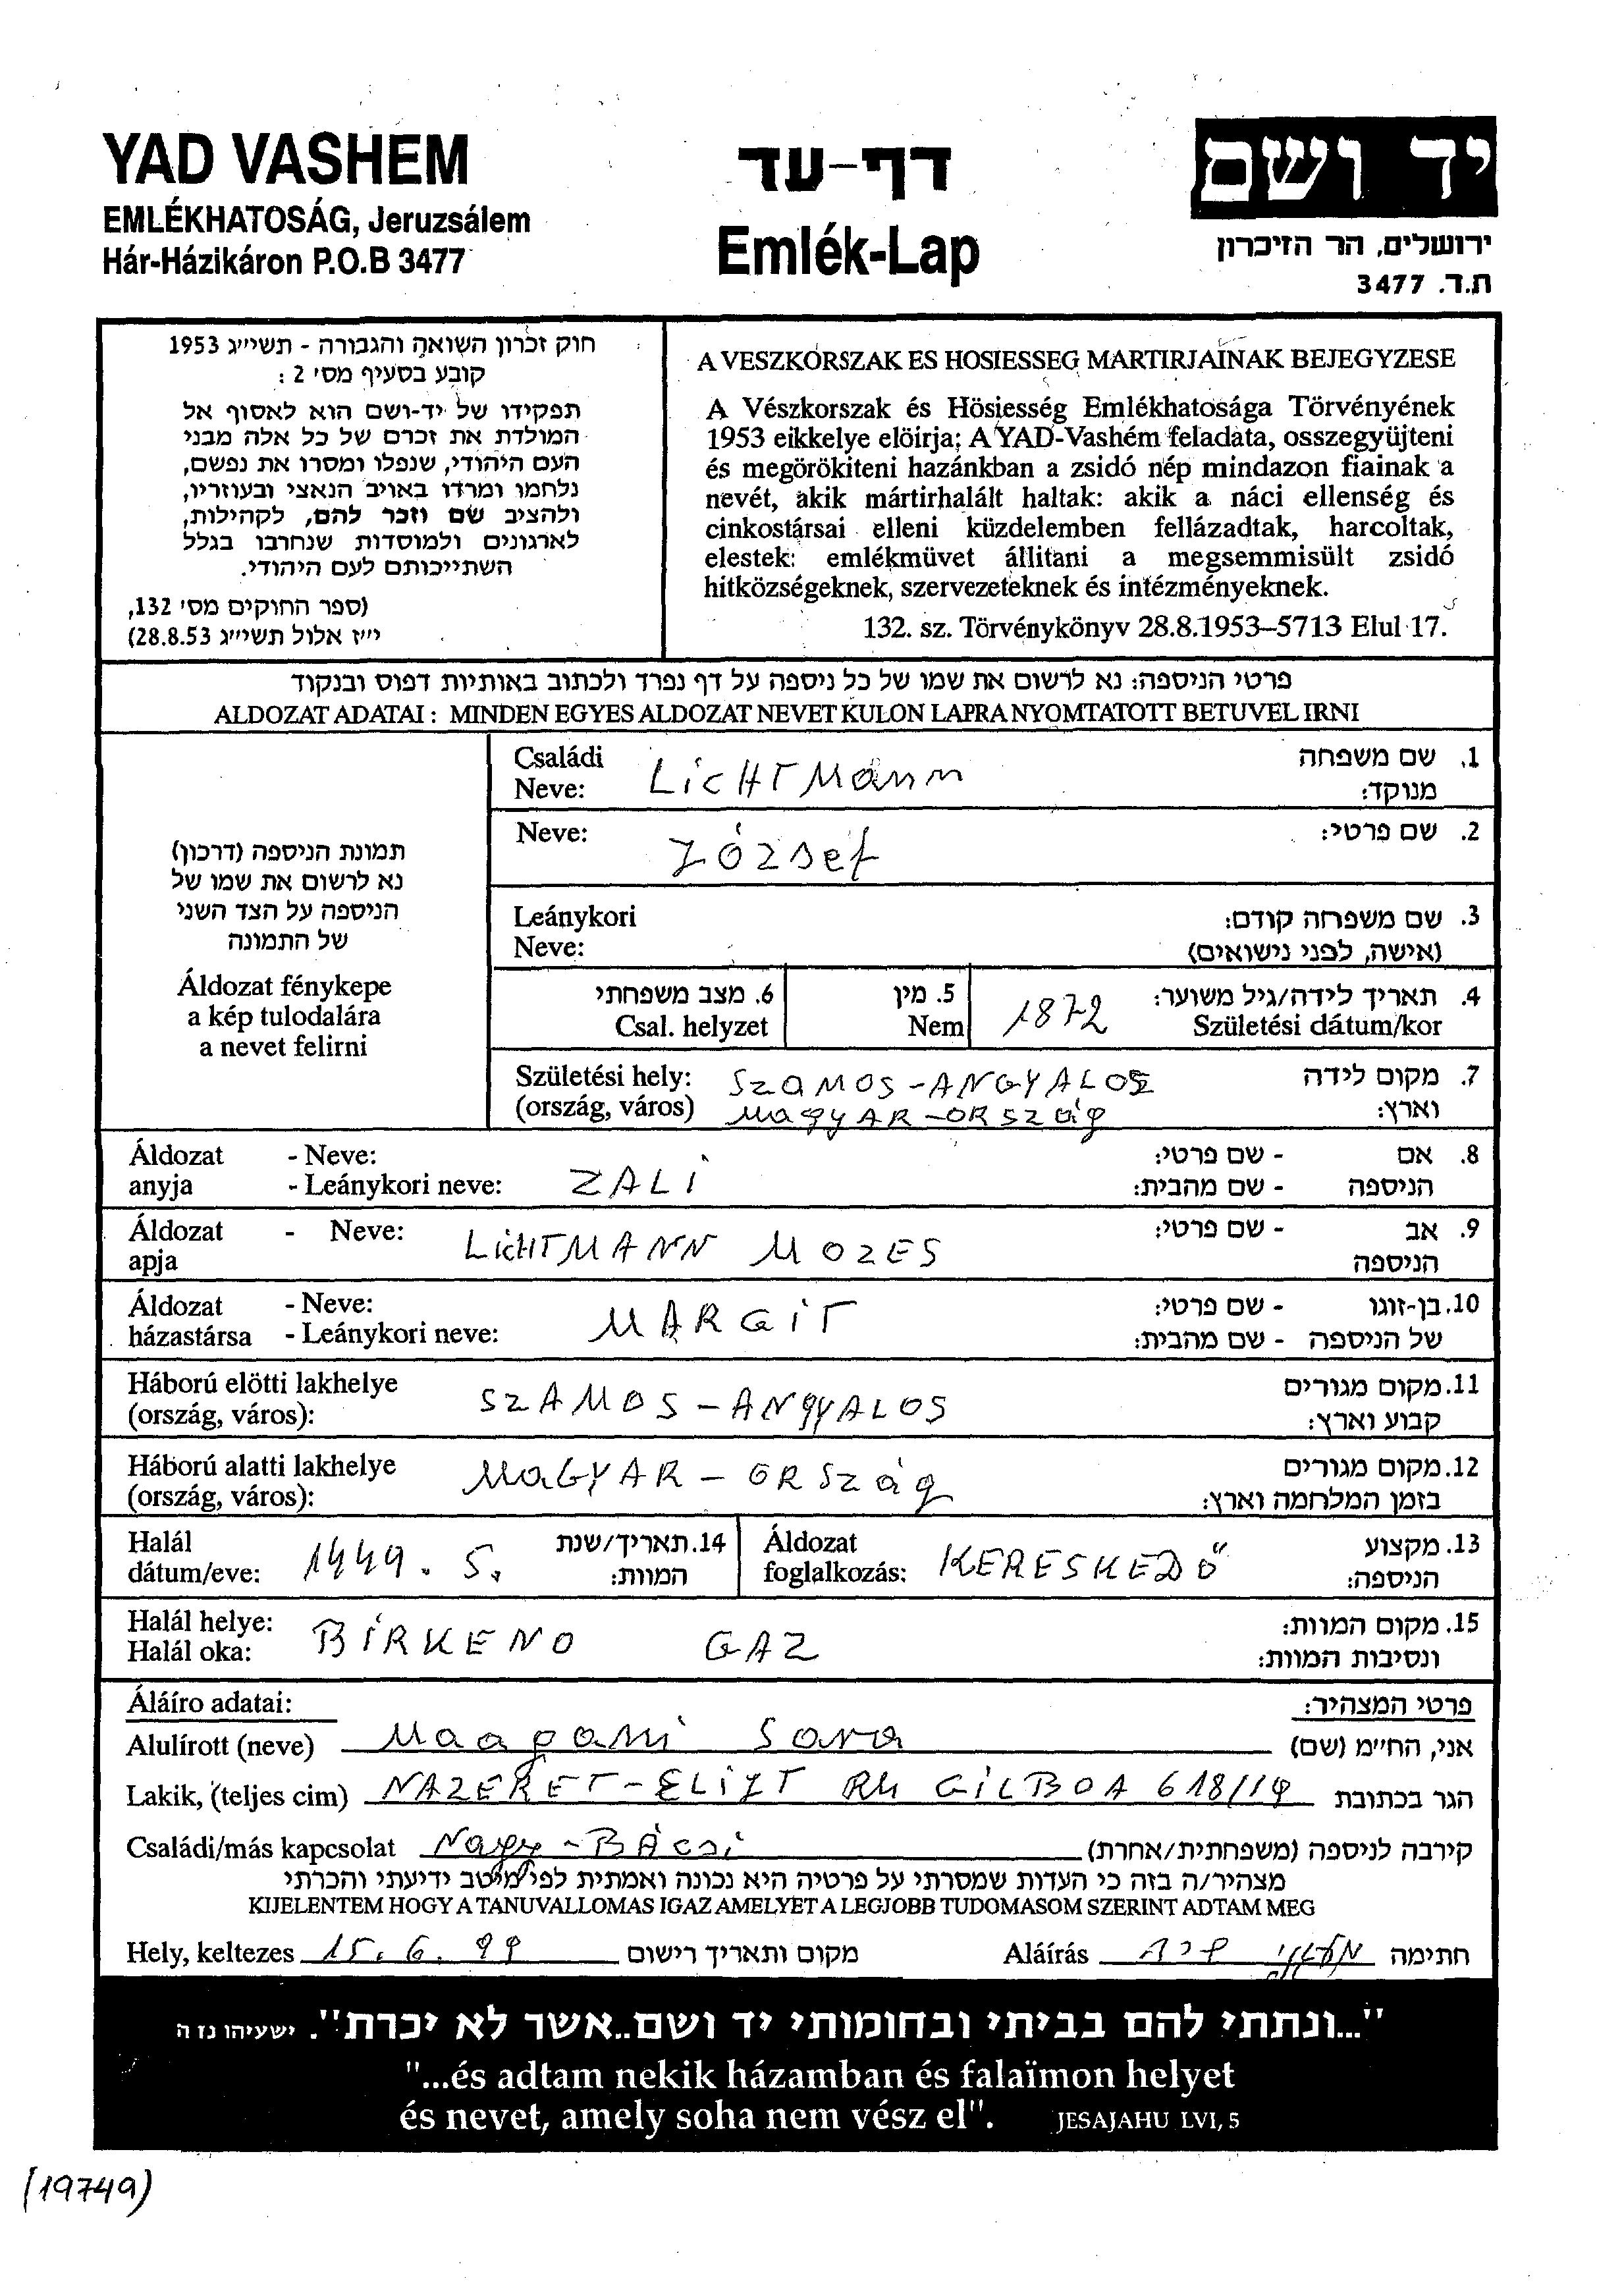 YAD VASHEM
EMLÉKHATOSÁG, Jeruzsálem
Hár-Házikáron P.O.B 3477
דף-עד
Emlék-Lap
יד ושם
ירושלים, הר הזיכרון
ת.ד. 3477
חוק זכרון השואה והגבורה - תשי״ג 1953
קובע בסעיף מס' 2 :
תפקידו של יד-ושם הוא לאסוף אל
המולדת את זכרם של כל אלה מבני
העם היהודי, שנפלו ומסרו את נפשם,
נלחמו ומרדו באויב הנאצי ובעוזריו,
ולהציב שם וזכר להם, לקהילות,
לארגונים ולמוסדות שנחרבו בגלל
השתייכותם לעם היהודי.
(ספר החוקים מס' 132,
י״ז אלול תשי״ג 28.8.53)
A VESZKORSZAK ES HOSIESSEG MARTIRJAINAK BEJEGYZESE
A Vészkorszak és Hösiesség Emlékhatosága Törvényének
1953 eikkelye elöirja; A YAD-Vashém feladata, osszegyüjteni
és megörökiteni hazánkban a zsidó nép mindazon fiainak a
nevét, akik mártirhalált haltak: akik a náci ellenség és
cinkostársai elleni küzdelemben fellázadtak, harcoltak,
elestek: emlékmüvet állitani a megsemmisült zsidó
hitközségeknek, szervezeteknek és intézményeknek.
132. sz. Törvénykönyv 28.8.1953–5713 Elul 17.
פרטי הניספה: נא לרשום את שמו של כל ניספה על דף נפרד ולכתוב באותיות דפוס ובנקוד
ALDOZAT ADATAI : MINDEN EGYES ALDOZAT NEVET KULON LAPRA NYOMTATOTT BETUVEL IRNI
תמונת הניספה (דרכון)
נא לרשום את שמו של
הניספה על הצד השני
של התמונה
Áldozat fénykepe
a kép tulodalára
a nevet felirni
Családi Neve: LICHTMANN 1. שם משפחה מנוקד:
Neve: József 2. שם פרטי:
Leánykori Neve: 3. שם משפחה קודם: (אישה, לפני נישואים)
6. מצב משפחתי Csal. helyzet 5. מין Nem 1872 4. תאריך לידה/גיל משוער: Születési dátum/kor
Születési hely: SZAMOS-ANGYALOS 7. מקום לידה
(ország, város) MAGYAR-ORSZÁG וארץ:
Áldozat - Neve: 8. אם - שם פרטי:
anyja - Leánykori neve: ZALI הניספה - שם מהבית:
Áldozat - Neve: LICHTMANN MOZES 9. אב - שם פרטי:
apja הניספה
Áldozat - Neve: MARGIT 10. בן-זוגו - שם פרטי:
házastársa - Leánykori neve: של הניספה - שם מהבית:
Háború elötti lakhelye 11. מקום מגורים
(ország, város): SZAMOS-ANGYALOS קבוע וארץ:
Háború alatti lakhelye 12. מקום מגורים
(ország, város): MAGYAR-ORSZÁG בזמן המלחמה וארץ:
Halál dátum/eve: 1944. 5. 14. תאריך/שנת המוות:
Áldozat foglalkozás: KERESKEDŐ 13. מקצוע הניספה:
Halál helye: BIRKENO GAZ 15. מקום המוות:
Halál oka: ונסיבות המוות:
Áláíro adatai: פרטי המצהיר:
Alulírott (neve) Sara אני, החי״מ (שם)
Lakik, (teljes cim) NAZERET-ELIZT RH GILBOA 618/19 הגר בכתובת
Családi/más kapcsolat Nagy-BÁCSI קירבה לניספה (משפחתית/אחרת)
מצהיר/ה בזה כי העדות שמסרתי על פרטיה היא נכונה ואמתית לפי מיטב ידיעתי והכרתי
KIJELENTEM HOGY A TANUVALLOMAS IGAZ AMELYET A LEGJOBB TUDOMASOM SZERINT ADTAM MEG
Hely, keltezes 15. 6. 99 מקום ותאריך רישום Aláírás שרה חתימה
"...ונתתי להם בביתי ובחומותי יד ושם..אשר לא יכרת". ישעיהו נז ה
"...és adtam nekik házamban és falaïmon helyet
és nevet, amely soha nem vész el". JESAJAHU LVI, 5
(19749)